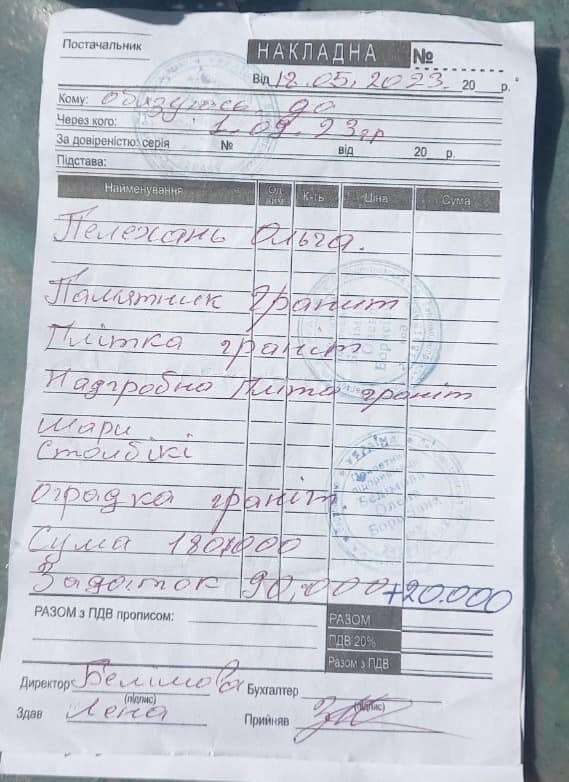 Постачальник
НАКЛАДНА №
Від 12.05.2023. 20 р.
Кому: обязуюсь до
Через кого: 1.09.23гр
За довіреністю: серія № від 20 р.
Підстава:
Найменування Од. вим. К-ть Ціна Сума
Пелехань Ольга.
Памятник граніт
Плітка граніт
Надгробна плита граніт
Шари
Столбікі
Оградка граніт
Сума 180.000
Задаток 90.000 +20.000
РАЗОМ з ПДВ прописом: РАЗОМ
ПДВ 20%
Разом з ПДВ
Директор Белімова Бухгалтер
(підпис) (підпис)
Здав Лена Прийняв